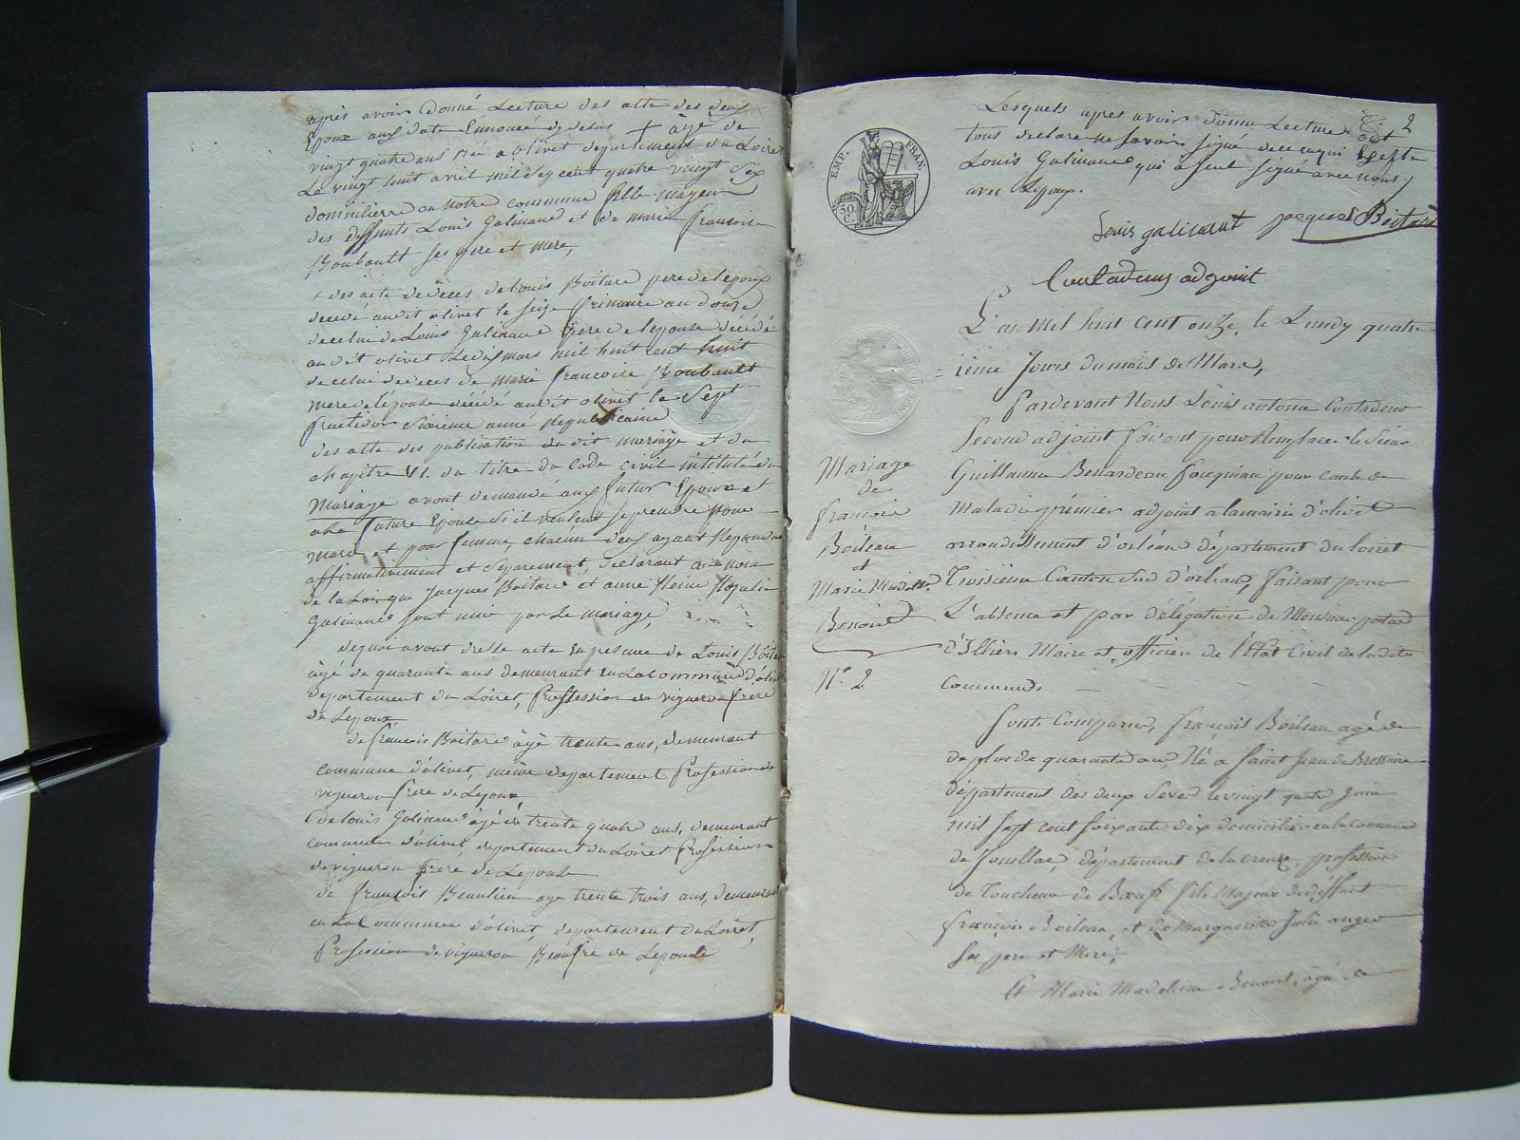 après avoir donné Lecture des acte des deux
Epoux aux date Ennoncé dy desus + âgé de
vingt quatre ans née a olivet departement du Loiret
Le vingt huit avril mil sept cent quatre vingt six
domiciliere en notre commune fille mageur
des deffunts Louis Galinand et de marie francoise
Boubault ses pere et mere,
+ des acte de déces de Louis Boitard pere de lepoux
decedé audit olivet le seize frimaire an douze
de celui de Louis Galinand pere de lepouse décédé
audit olivet Le dix mars mil huit cent huit
de celui de deces de marie francoise Boubault
mere de lepouse décédé audit olivet le Sept
fructidor sixieme anné Republicaine
des acte des publication du dit mariage et du
chapitre VI. du titre du Code civil intitulé du
Mariage avont demandé aux futur Epoux et
a La future Epouse si il veulent se prendre pour
mari et pour femme, chacun d'eux ayant Repondu
affirmativement et séparement, declarant au nom
de la Loi que Jacques Boitard et anne Reine
Galinand sont unis par Le mariage,
de quoi avont dressé acte En presence de Louis Boitard
âgé de quarante ans demeurant en La commune d'olivet
departement du Loiret, Proffession de vigneron frere
de Lepoux,
de francois Boitard âgé trente ans, demeurant
commune d'olivet, même departement Profession de
vigneron frere de Lepoux
de Louis Galinand âgé de trente quatre ans, demeurant
commune d'olivet departement du Loiret Profession
de vigneron frere de Lepouse
de françois Beaulieu age trente trois ans, demeurant
en La Commune d'olivet, departement du Loiret,
Profession de vigneron Beaufre de Lepouse
2
Lesquels apres avoir donné Lecture ont
tous declare ne savoir signé de ce requi Excepté
Louis Galinand qui a seul signé avec nous,
avec Lepoux.
EMP. FRAN.
50 C.
Louis galinant jacques Boitard
adjoint
L'an mil huit cent onze, le Lundy quatr-
ième Jours du mois de Mars,
Pardevant Nous Louis antoine
Second adjoint faisant pour Remplacer le Sieur
Guillaume pour cause de
Maladie premier adjoint a la mairie d'olivet
arrondissement d'orléans département du loiret
Troisieme Canton Sud d'orleans, faisant pour
L'absence et par délégation de Monsieur
d'Illiers Maire et officier de l'Etat Civil de ladite
commune.
Mariage
de
francois
Boileau
et
Marie Madelne.
Benoist
N°. 2
Sont Comparus, françois Boileau agé de
de plus de quarante ans Né a Saint Jean de Bressuire
département des deux Sevres le vingt quatre Juin
mil sept cent soixante dix domicilié en la commune
de Jouillac, département de la creuze, profession
de Toucheur de Bœufs fils Majeur de deffunt
françois Boileau, et de Margueritte Julie anger
Ses pere et Mere;
Et Marie Madeleine Benoist, agé de